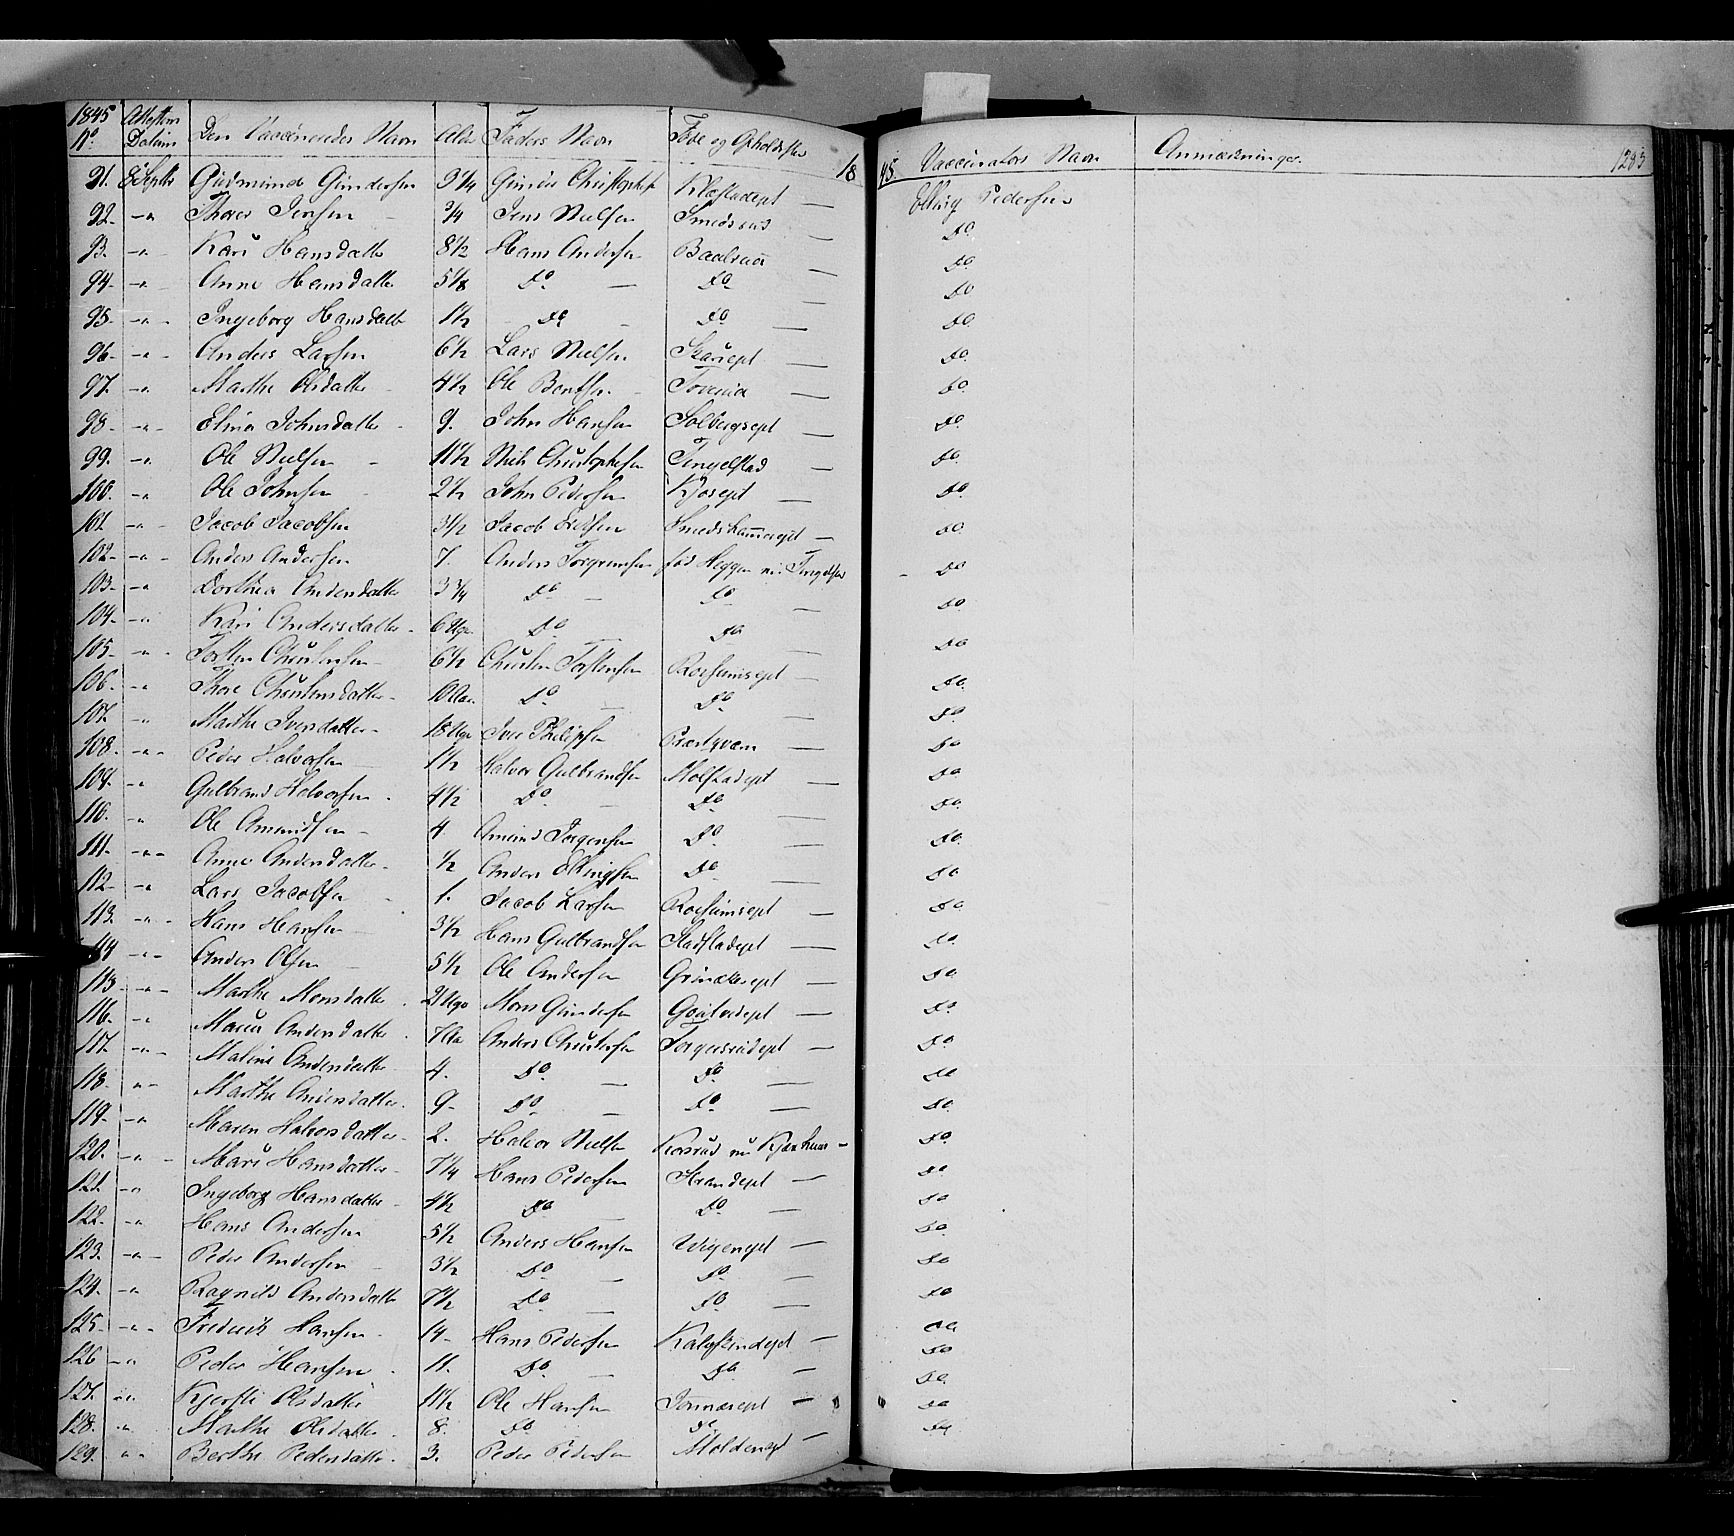 1845 Attestens 
No. Datum Den Vaccineredes Navn Alder Faders Navn Føde og Opholdssted 18 45 Vaccinators Navn Anmærkninger 1283
91. 8 Septbr Gudmund Gundersen 9 1/4 Gunder Christophersen Klæstadept — Elling Pedersen
92. -"- Thorer Jensen 3/4 Jens Nielsen Smedsrud — Do
93. -"- Kari Hansdatter 8 1/2 Hans Andersen Baalsrud — Do
94. -"- Anne Hansdatter 5 1/8 Do — Do — Do
95. -"- Ingeborg Hansdatter 1 1/2 Do — Do — Do
96. -"- Anders Larsen 6 1/2 Lars Nielsen — Do
97. -"- Marthe Olsdatter 4 1/2 Ole Bentsen — Do
98. -"- Elina Johnsdatter 9. John Hansen Solbergsept — Do
99. -"- Ole Nielsen 11 1/2 Niels Christophersen Tingelstad — Do
100. -"- Ole Johnsen 2 1/2 John Pedersen Kjosept — Do
101. -"- Jacob Jacobsen 3 1/2 Jacob Smedshammerept — Do
102. -"- Anders Andersen 7. Anders Torgrimsen fød Heggen nu Tingelstad — Do
103. -"- Dorthea Andersdatter 3 3/4 Do — Do — Do
104. -"- Kari Andersdatter 6 Uger Do Do Do
105. -"- Torsten Christensen 6 1/2 Christen Torstensen — Do
106. -"- Thore Christensdatter 10 Do — Do — Do
107. -"- Marthe Iversdatter 18 Uger Iver Philipsen Præstqvern — Do
108. -"- Peder Halvorsen 1 1/2 Halvor Gulbrandsen Molstadept — Do
109. -"- Gulbrand Halvorsen 4 1/2 Do — Do — Do
110. -"- Ole Amundsen 4. Amund Jørgensen Do — Do
111. -"- Anne Andersdatter 1/2 Anders Ellingsen Do — Do
112. -"- Lars Jacobsen 1. Jacob Larsen — Do
113. -"- Hans Hansen 3 1/2 Hans Gulbrandsen — Do
114 -"- Anders Olsen 5 1/2 Ole Andersen Grinakerept — Do
115. -"- Marthe Monsdatter 21 Uger Mons Gundersen — Do
116. -"- Maria Andersdatter 7 Anders Christensen Torgersrudept — Do
117. -"- Maline Andersdatter 4. Do — Do — Do
118. -"- Marthe Andersdatter 9. Do — Do — Do
119. -"- Maren Halvorsdatter 2. Halvor Nielsen Korsrud nu — Do
120. -"- Mari Hansdatter 7 1/4 Hans Pedersen — Do
121. -"- Ingeborg Hansdatter 4 1/2 Do — Do — Do
122. -"- Hans Andersen 5 1/2 Anders Hansen Wigenept — Do
123. -"- Peder Andersen 3 1/2 Do — Do — Do
124. -"- Ragnild Andersdatter 7 1/2 Do — Do — Do
125. -"- Frederik Hansen 14. Hans Pedersen Kalvskindept — Do
126 -"- Peder Hansen 11. Do — Do — Do
127. -"- Kjersti Olsdatter 11 1/2 Ole Hansen — Do
128. " Marthe Olsdatter 8. Do Do Do
129. -"- Berthe Pedersdatter 3. Peder Pedersen Moldenept —